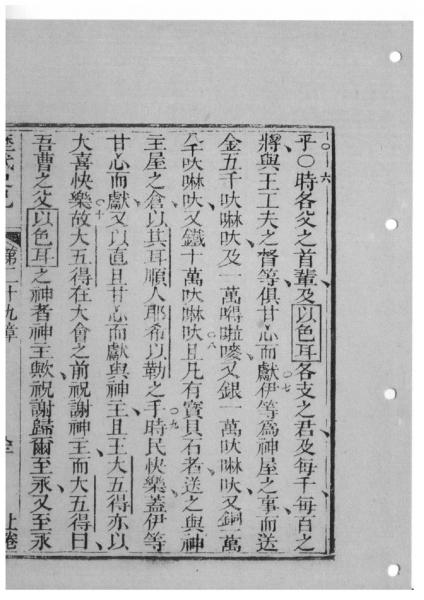 乎〇六時各父之首輩及以色耳各支之君及每千每百之
將與王工夫之督等俱甘心而獻〇七伊等為神屋之事而送
金五千呔啉呔及一萬嘚啦嘜又銀一萬呔啉呔又銅一萬
八千呔啉呔又鐵十萬呔啉呔〇八且凡有寶貝石者送之與神
主屋之倉以其耳順人耶希以勒之手〇九時民快樂蓋伊等
甘心而獻又以直且甘心而獻與神主且王大五得亦以
大喜快樂〇十故大五得在大會之前祝謝神主而大五得曰
吾曹之父以色耳之神者神主歟祝謝歸爾至永又至永
歷代史記 第二十九章 上卷